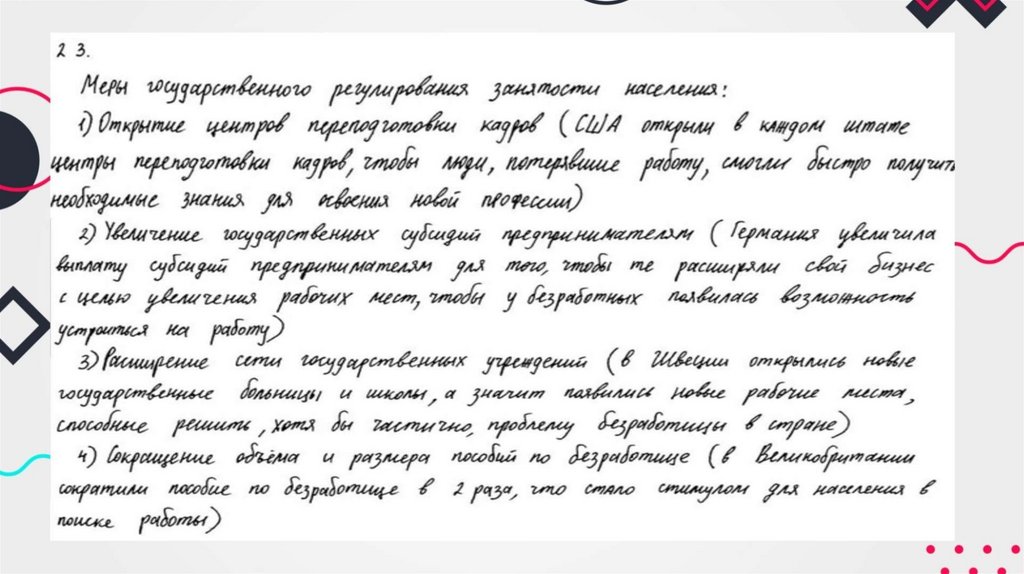 23.
Меры государственного регулирования занятости населения:
1) Открытие центров переподготовки кадров (США открыли в каждом штате
центры переподготовки кадров, чтобы люди, потерявшие работу, смогли быстро получить
необходимые знания для освоения новой профессии)
2) Увеличение государственных субсидий предпринимателям (Германия увеличила
выплату субсидий предпринимателям для того, чтобы те расширяли свой бизнес
с целью увеличения рабочих мест, чтобы у безработных появилась возможность
устроиться на работу)
3) Расширение сети государственных учреждений (в Швеции открылись новые
государственные больницы и школы, а значит появились новые рабочие места,
способные решить, хотя бы частично, проблему безработицы в стране)
4) Сокращение объёма и размера пособий по безработице (в Великобритании
сократили пособие по безработице в 2 раза, что стало стимулом для населения в
поиске работы)